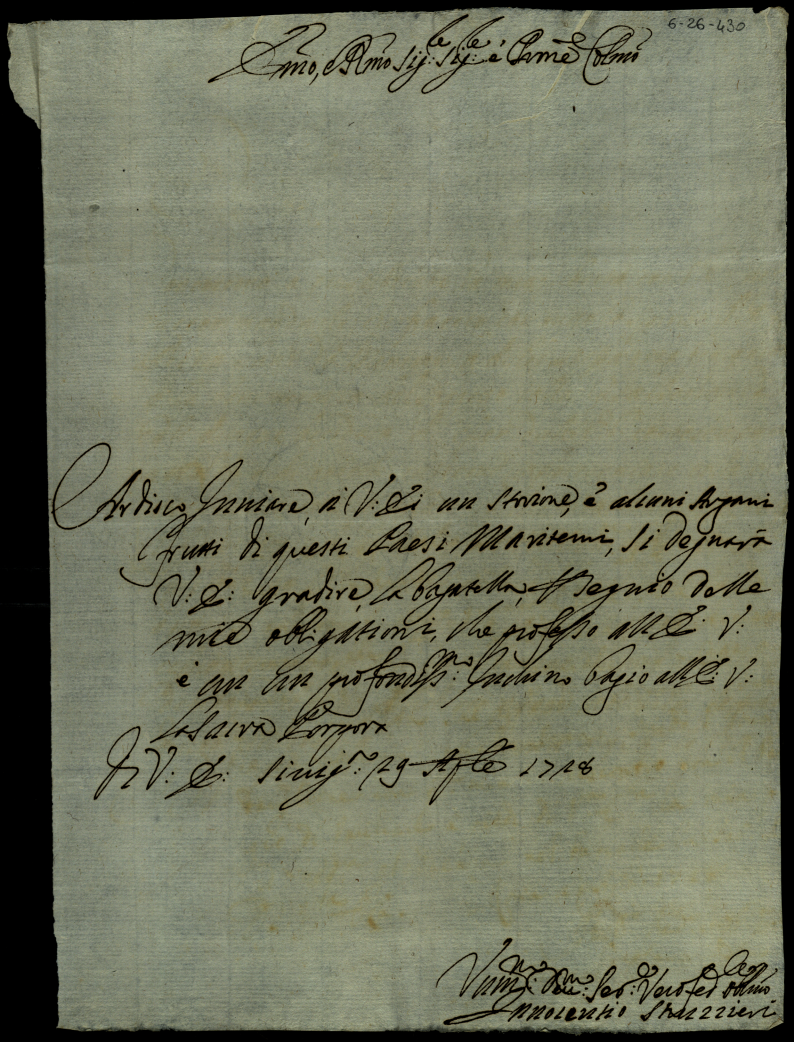 6-26-430
Emo, e Rmo Sig:re Sig:re e Prone Colmo
Ardisco Inviare à V: E: un storione, è alcuni
frutti di questi Paesi Maritimi, si degnarà
V: E: gradire, la bagatella, segnio delle
mie obligationi, che professo all'E: V:
è con un profondiss:mo Inchino bagio all'E: V:
la sacra Porpora
Di V: E: Sinig:a 29 1718
Um:mo Dev:mo Ser:e Vero, ed obblmo
Innocentio Struzzieri